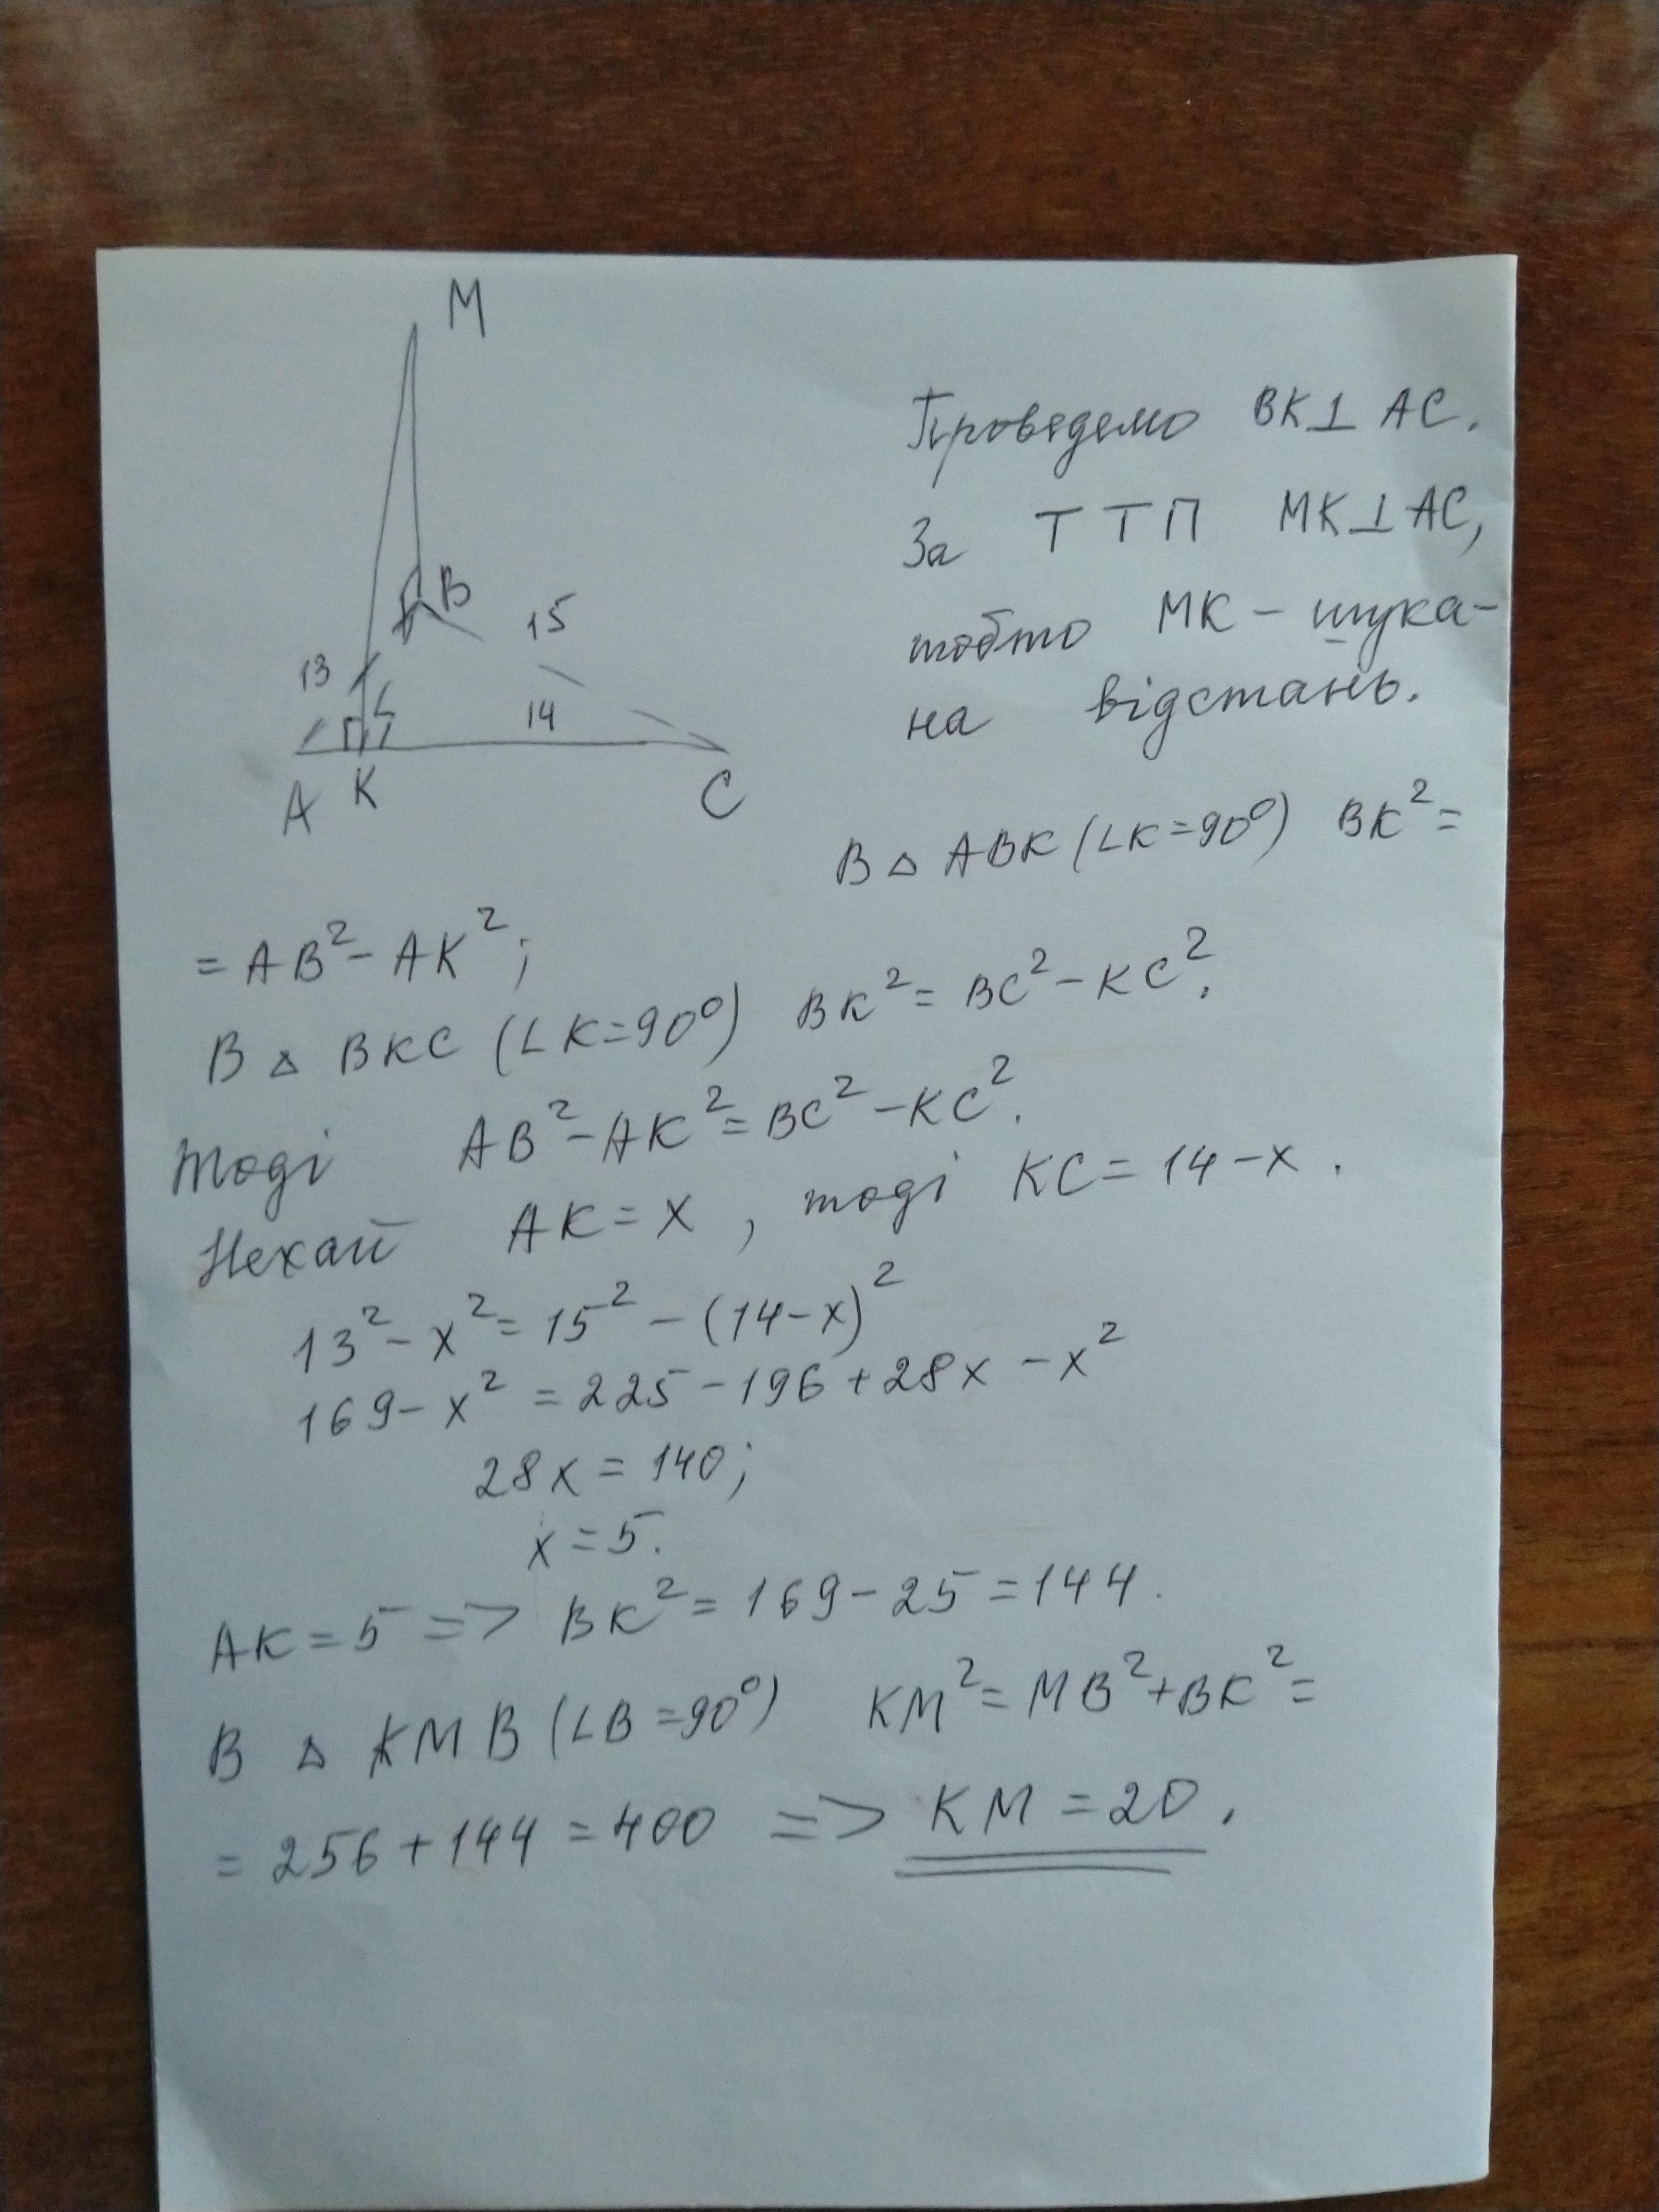 M
B
15
13
14
A K C
Проведемо BK⊥AC.
За ТТП MK⊥AC,
тобто MK – шука-
на відстань.
В △ ABK (∠K=90⁰) BK²=
= AB² – AK²;
В △ BKC (∠K=90⁰) BK² = BC² – KC².
Тоді AB² – AK² = BC² – KC².
Нехай AK = x, тоді KC = 14 – x.
13² – x² = 15² – (14 – x)²
169 – x² = 225 – 196 + 28x – x²
28x = 140;
x = 5.
AK = 5 => BK² = 169 – 25 = 144.
В △ KMB (∠B = 90⁰) KM² = MB² + BK² =
= 256 + 144 = 400 => KM = 20.